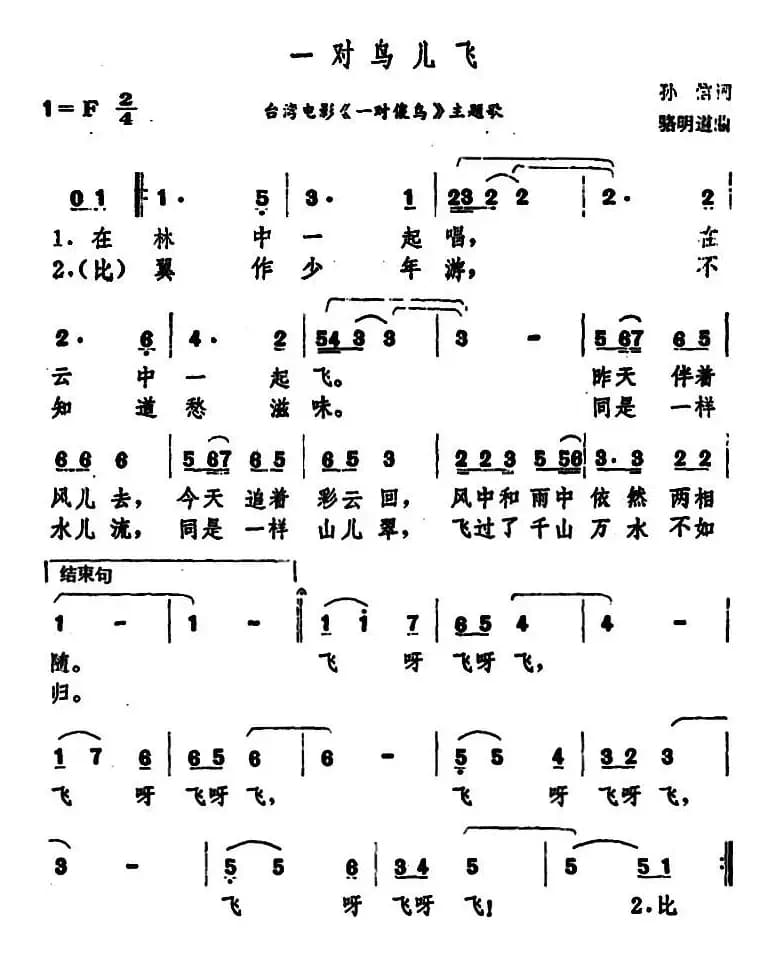 一对鸟儿飞
1=F 2/4
台湾电影《一对傻鸟》主题歌
孙 词
骆明道曲
0 1 1· 5 3· 1 23 2 2 2· 2
1. 在林中一起唱， 在
2.(比)翼作少年游， 不
2· 6 4· 2 54 3 3 3 - 5 67 6 5
云中一起飞。 昨天伴着
知道愁滋味。 同是一样
6 6 6 5 67 6 5 6 5 3 2 2 3 5 56 3· 3 2 2
风儿去， 今天追着彩云回， 风中和雨中依然两相
水儿流， 同是一样山儿翠， 飞过了千山万水不如
结束句
1 - 1 - 1 i 7 6 5 4 4 -
随。 飞呀飞呀飞，
归。
1 7 6 6 5 6 6 - 5 5 4 3 2 3
飞呀飞呀飞， 飞呀飞呀飞，
3 - 5 5 6 3 4 5 5 5 1
飞呀飞呀飞! 2. 比